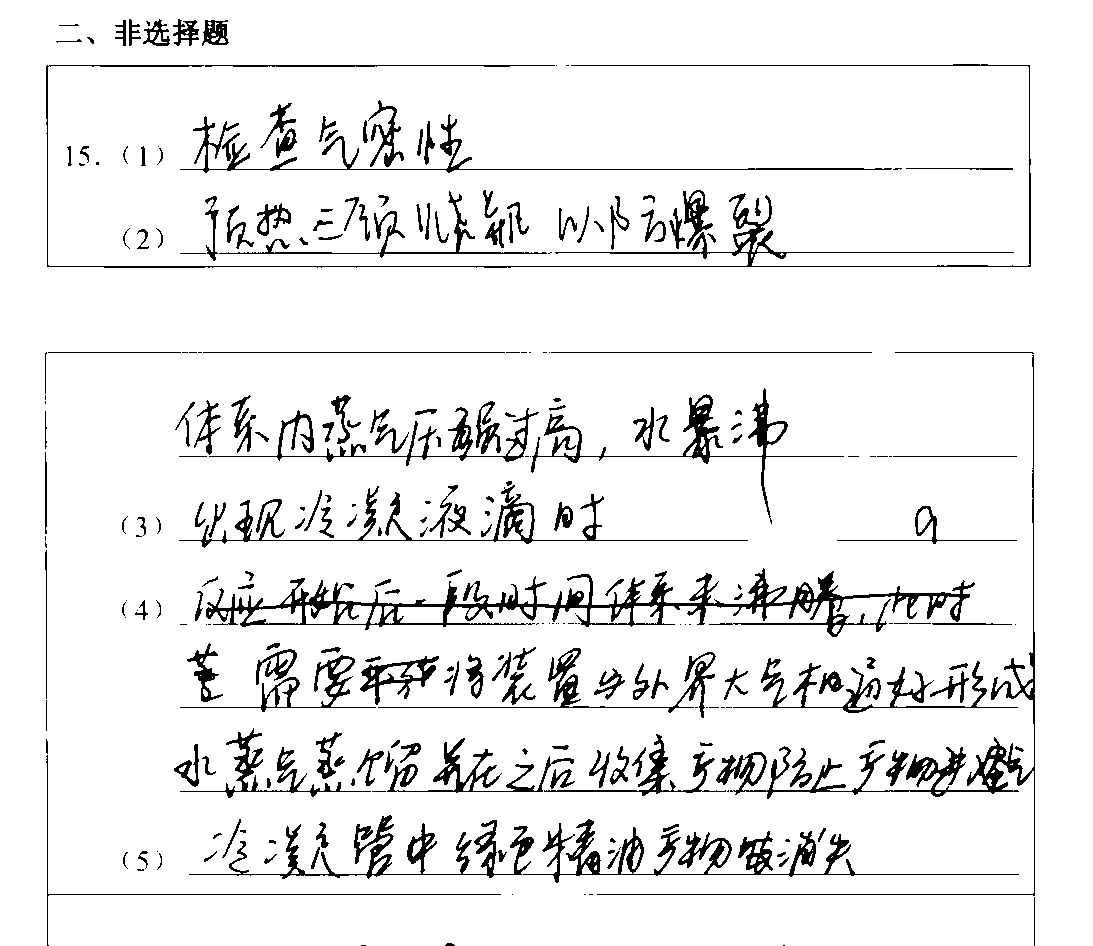 二、非选择题
15.（1）检查气密性
（2）预热三颈烧瓶 以防爆裂
体系内蒸气压强过高，水暴沸
（3）出现冷凝液滴时 a
（4）反应开始后一段时间体系未沸腾，此时
需要将装置与外界大气相通好形成
水蒸气蒸馏 并在之后收集产物防止产物
（5）冷凝管中绿色精油产物消失